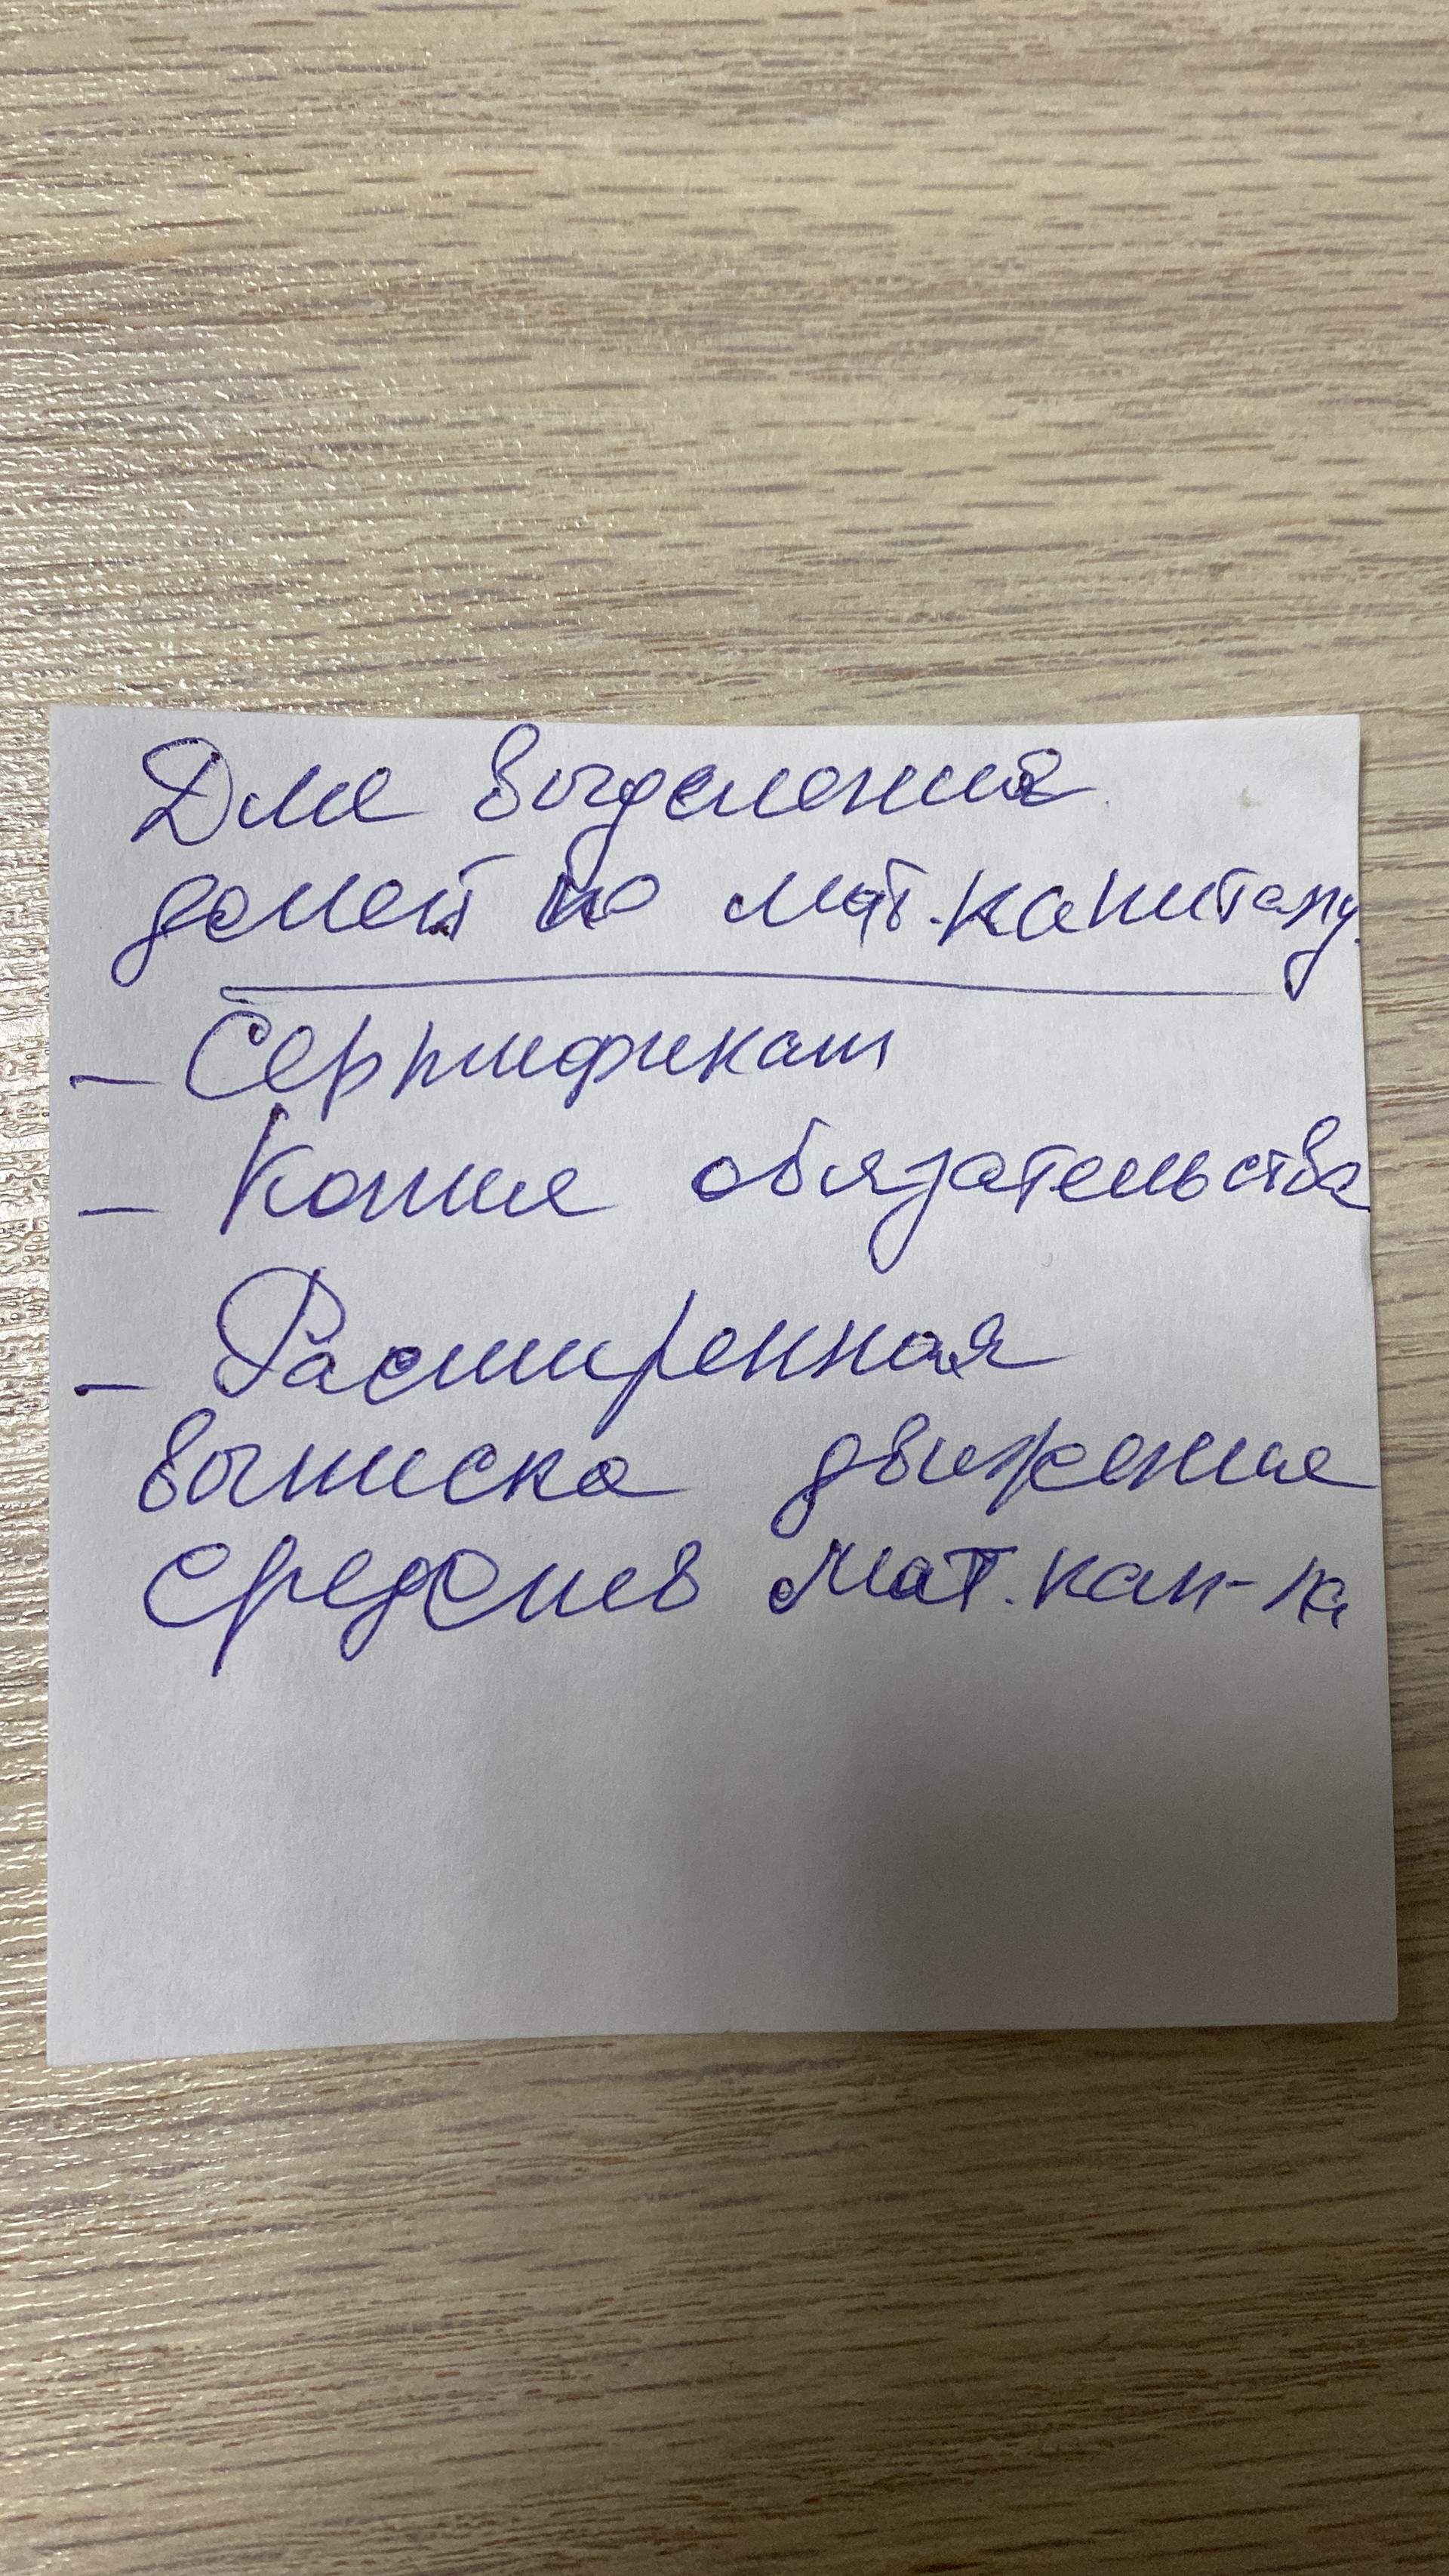 Для выделения
долей по мат.капиталу.
- Сертификат
- Копия обязательства
- Расширенная
выписка движение
средств мат.кап-ла